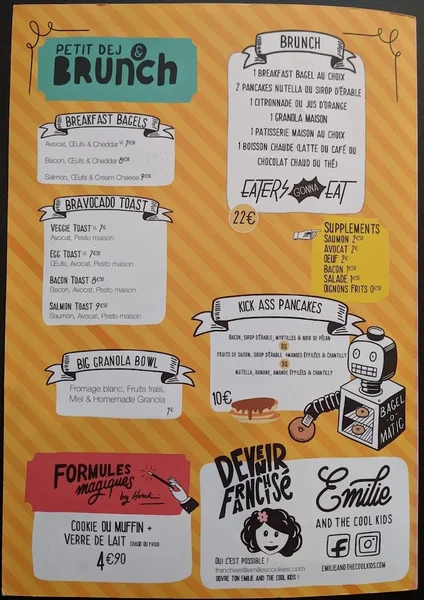 PETIT DEJ &
BRUNCH
BREAKFAST BAGELS
Avocat, Œufs & Cheddar 7€50
Bacon, Œufs & Cheddar 8€50
Salmon, Œufs & Cream Cheese 9€50
BRAVOCADO TOAST
VEGGIE TOAST 7€
Avocat, Pesto maison
EGG TOAST 7€50
Œufs, Avocat, Pesto maison
BACON TOAST 8€50
Bacon, Avocat, Pesto maison
SALMON TOAST 9€50
Saumon, Avocat, Pesto maison
BIG GRANOLA BOWL
Fromage blanc, Fruits frais,
Miel & Homemade Granola
7€
FORMULES
magiques
by Houd
COOKIE OU MUFFIN +
VERRE DE LAIT CHAUD OU FROID
4€90
BRUNCH
1 BREAKFAST BAGEL AU CHOIX
2 PANCAKES NUTELLA OU SIROP D'ÉRABLE
1 CITRONNADE OU JUS D'ORANGE
1 GRANOLA MAISON
1 PATISSERIE MAISON AU CHOIX
1 BOISSON CHAUDE (LATTE OU CAFÉ OU
CHOCOLAT CHAUD OU THÉ)
EATERS GONNA EAT
22€
SUPPLEMENTS
SAUMON 2€50
AVOCAT 2€
OEUF 2€
BACON 1€50
SALADE 1€50
OIGNONS FRITS 0€50
KICK ASS PANCAKES
BACON, SIROP D'ÉRABLE, MYRTILLES & NOIX DE PÉCAN
OU
FRUITS DE SAISON, SIROP D'ÉRABLE, AMANDES EFFILÉES & CHANTILLY
OU
NUTELLA, BANANE, AMANDE EFFILÉES & CHANTILLY
10€
BAGEL
-O-
MATIC
DEVENIR
FRANCHISÉ
OUI C'EST POSSIBLE !
franchise@emiliescookies.com
OUVRE TON EMILIE AND THE COOL KIDS !
Emilie
AND THE COOL KIDS
EMILIEANDTHECOOLKIDS.COM